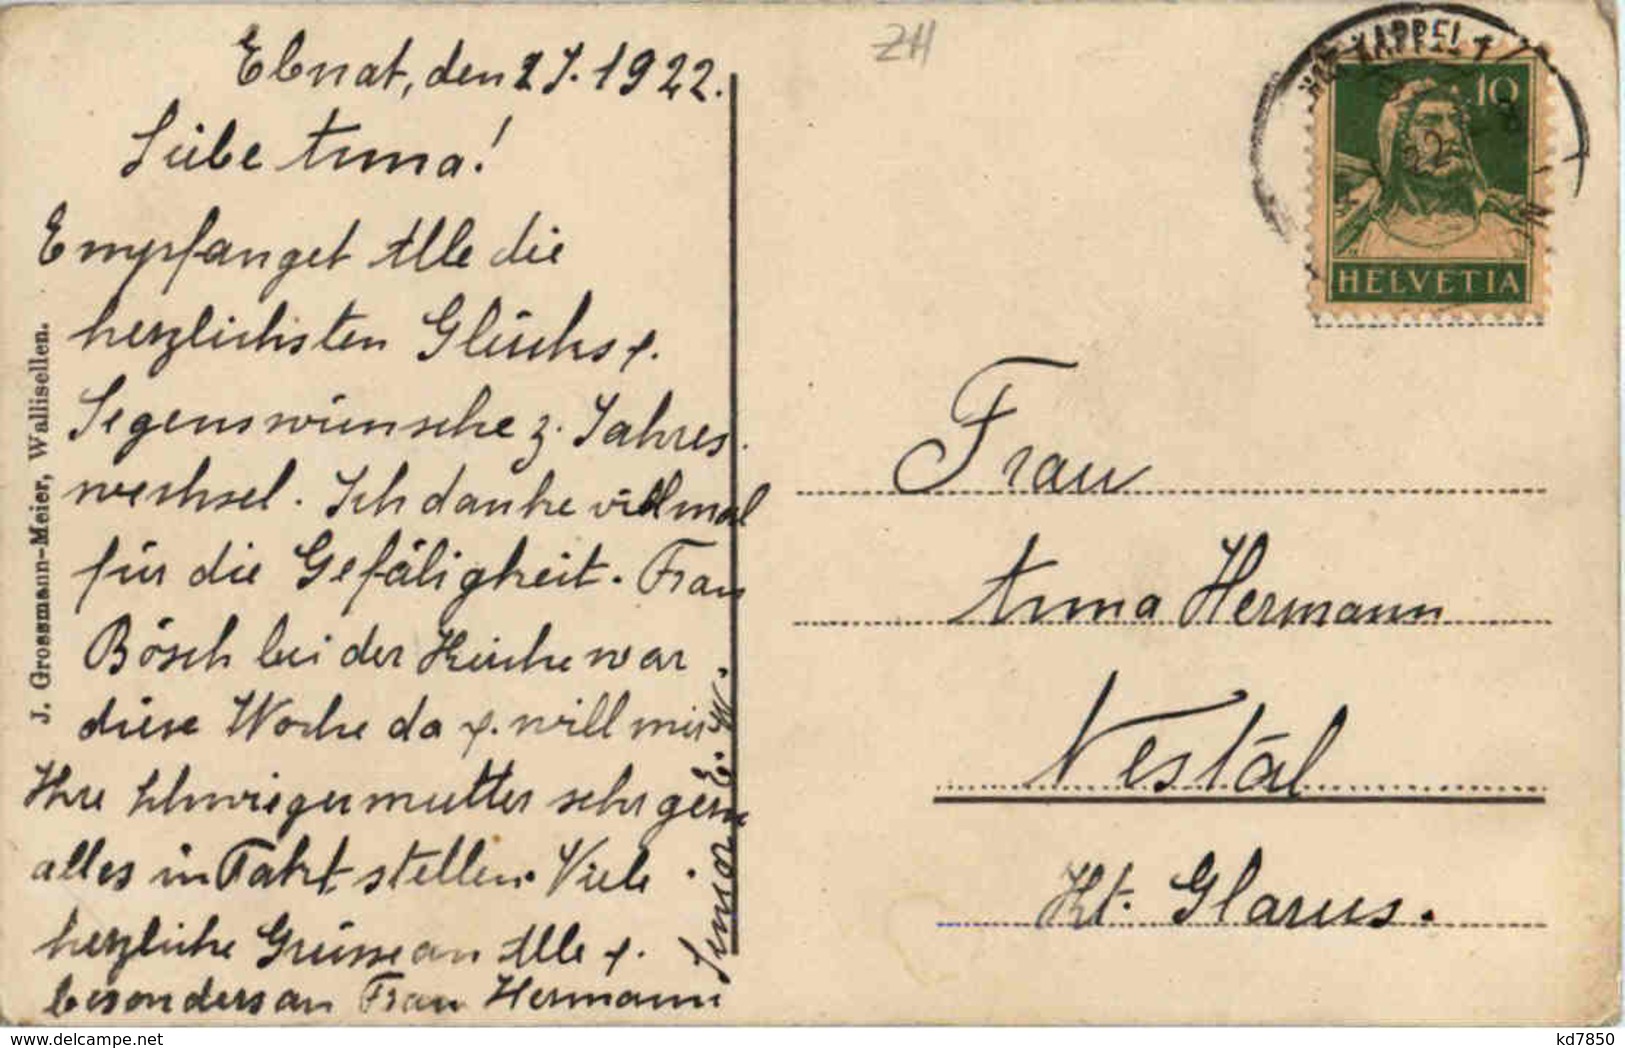 ZH
Ebnat, den 2 J. 1922.
Liebe Anna!
Empfanget Alle die
herzlichsten Glücks &.
Segenswünsche z. Jahres
wechsel. Ich danke vielmal
für die Gefäligkeit. Frau
Bösch bei der Kirche war
diese Woche da &. will mir
Ihre Schwiegermutter sehr gern
alles in Takt stellen. Viele
herzliche Grüsse an Alle &.
besonders an Frau Hermann
E. W.
J. Grossmann-Meier, Wallisellen.
KAPPEL
22
10
HELVETIA
Frau
Anna Hermann
Nestal
Kt. Glarus.
kd7850